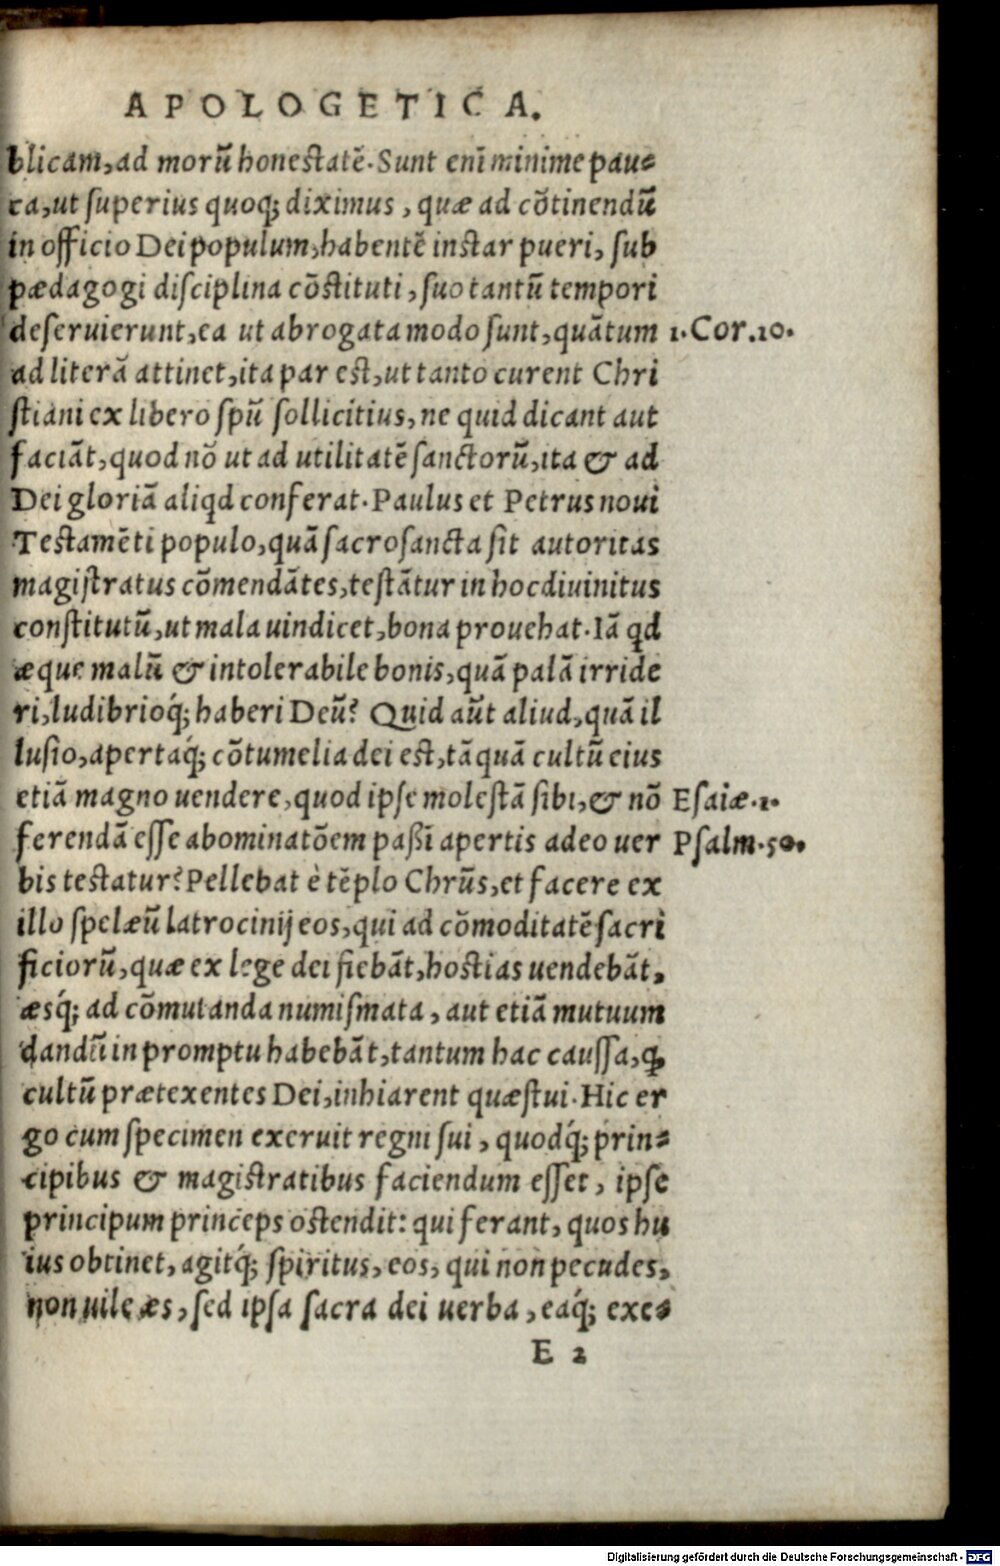 APOLOGETICA.
blicam, ad morū honestatē. Sunt enī minime pau=
ca, ut superius quoq; diximus, quæ ad cōtinendū
in officio Dei populum, habentē instar pueri, sub
pædagogi disciplina cōstituti, suo tantū tempori
deseruierunt, ea ut abrogata modo sunt, quātum 1. Cor. 10.
ad literā attinet, ita par est, ut tanto curent Chri
stiani ex libero spū sollicitius, ne quid dicant aut
faciāt, quod nō ut ad utilitatē sanctorū, ita & ad
Dei gloriā aliqd conferat. Paulus et Petrus noui
Testamēti populo, quā sacrosancta sit autoritas
magistratus cōmendātes, testātur in hoc diuinitus
constitutū, ut mala uindicet, bona prouehat. Iā qd
æque malū & intolerabile bonis, quā palā irride
ri, ludibrioq́; haberi Deū? Quid aūt aliud, quā il
lusio, apertaq́; cōtumelia dei est, tāquā cultū eius
etiā magno uendere, quod ipse molestā sibi, & nō Esaiæ. 1.
ferendā esse abominatōem paßī apertis adeo uer Psalm. 50.
bis testatur? Pellebat è tēplo Chrūs, et facere ex
illo spelæū latrocinij eos, qui ad cōmoditatē sacri
ficiorū, quæ ex lege dei fiebāt, hostias uendebāt,
æsq́; ad cōmutanda numismata, aut etiā mutuum
dandū in promptu habebāt, tantum hac caussa, ꝙ
cultū prætexentes Dei, inhiarent quæstui. Hic er
go cum specimen exeruit regni sui, quodq́; prin=
cipibus & magistratibus faciendum esset, ipse
principum princeps ostendit: qui ferant, quos hu
ius obtinet, agitq́; spiritus, eos, qui non pecudes,
non uile æs, sed ipsa sacra dei uerba, eaq́; exe=
E 2
Digitalisierung gefördert durch die Deutsche Forschungsgemeinschaft - DFG